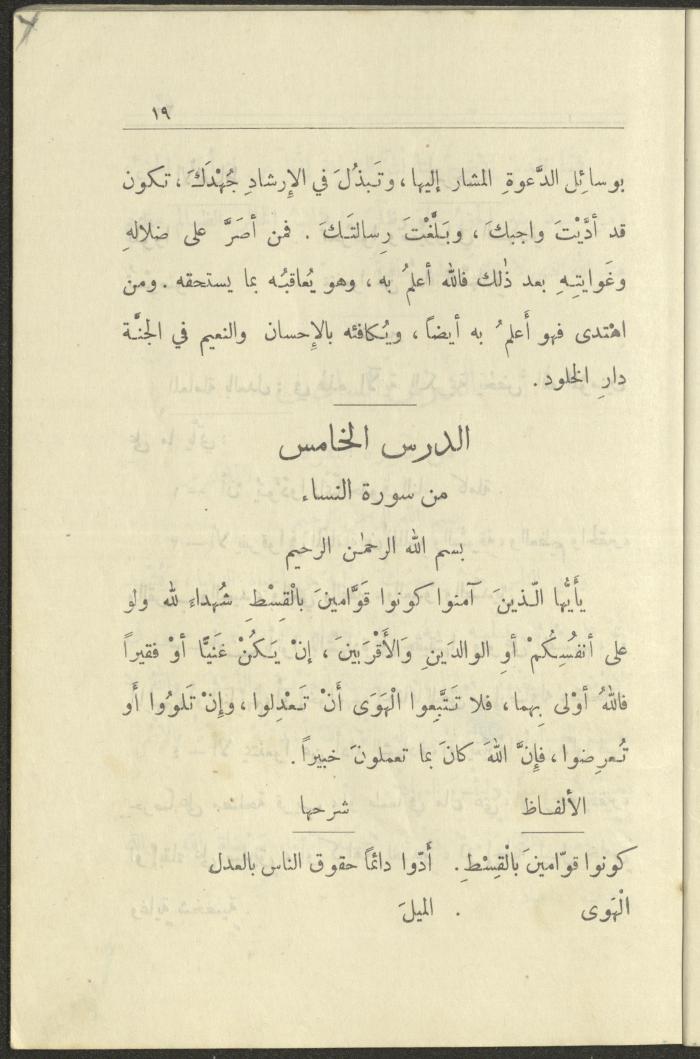 ١٩
بوسائِل الدَّعوةِ المشار إليها ، وتَبذُلَ في الإِرشادِ جُهْدَكَ ، تكون
قد أدَّيْتَ واجبكَ ، وبَلَّغْتَ رِسالتَكَ . فمن أصَرَّ على ضلالهِ
وغَوايتِهِ بعد ذٰلك فالله أعلمُ به ، وهو يُعاقبُه بما يستحقه . ومن
اهْتدى فهو أَعلمُ به أيضاً ، ويُكافئه بالإِحسان والنعيم في الجنَّة
دارِ الخلود .
الدرس الخامس
من سورة النساء
بسم الله الرحمٰن الرحيم
يأَيُّها الّذينَ آمنوا كونوا قَوَّامينَ بالْقِسْطِ شُهداءَ لله ولو
على أنفُسِكُمْ أوِ الوالدَينِ وَالأَقْرَبينَ ، إنْ يَكُنْ غَنيًّا أوْ فقيراً
فاللهُ أوْلى بِهما ، فلا تَتَّبِعوا الْهَوَى أَنْ تَعْدِلوا ، وإنْ تَلوُوا أَو
تُعرِضوا ، فإنَّ اللهَ كانَ بما تعملونَ خبيراً .
الألفاظ شرحها
كونوا قوّامينَ بالْقِسْطِ . أَدّوا دائماً حقوق الناس بالعدل
الْهَوى . الميلَ